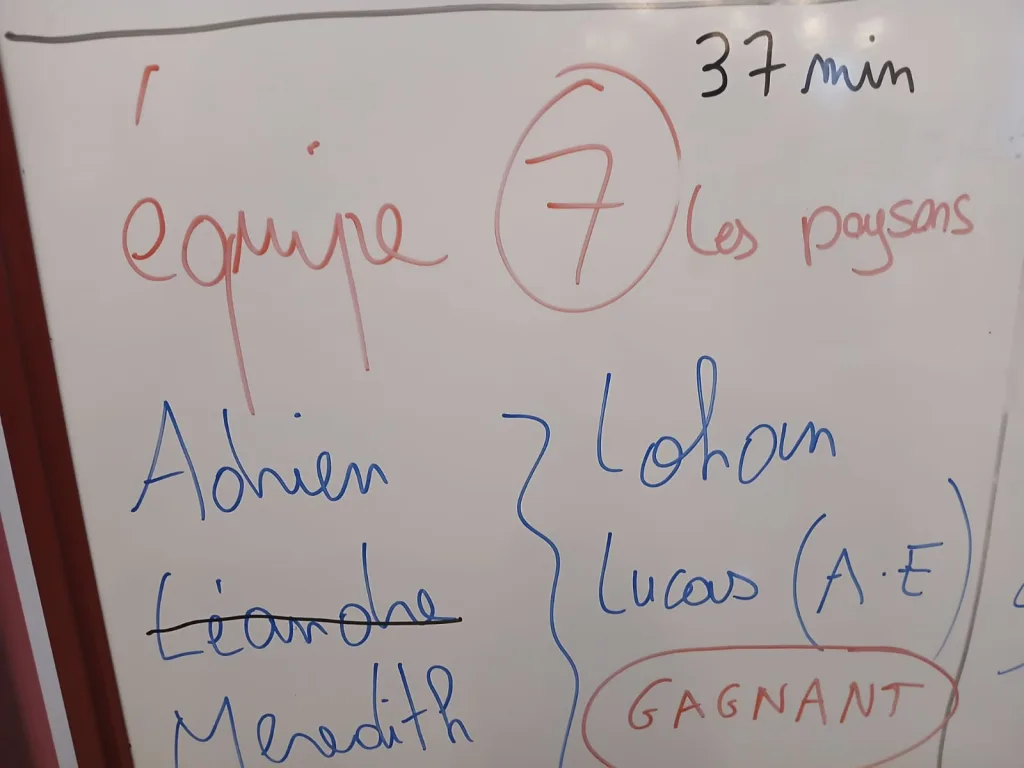 37 min
équipe 7 les paysans
Adrien
Léandre
Meredith
Lohan
Lucas (A.E)
GAGNANT